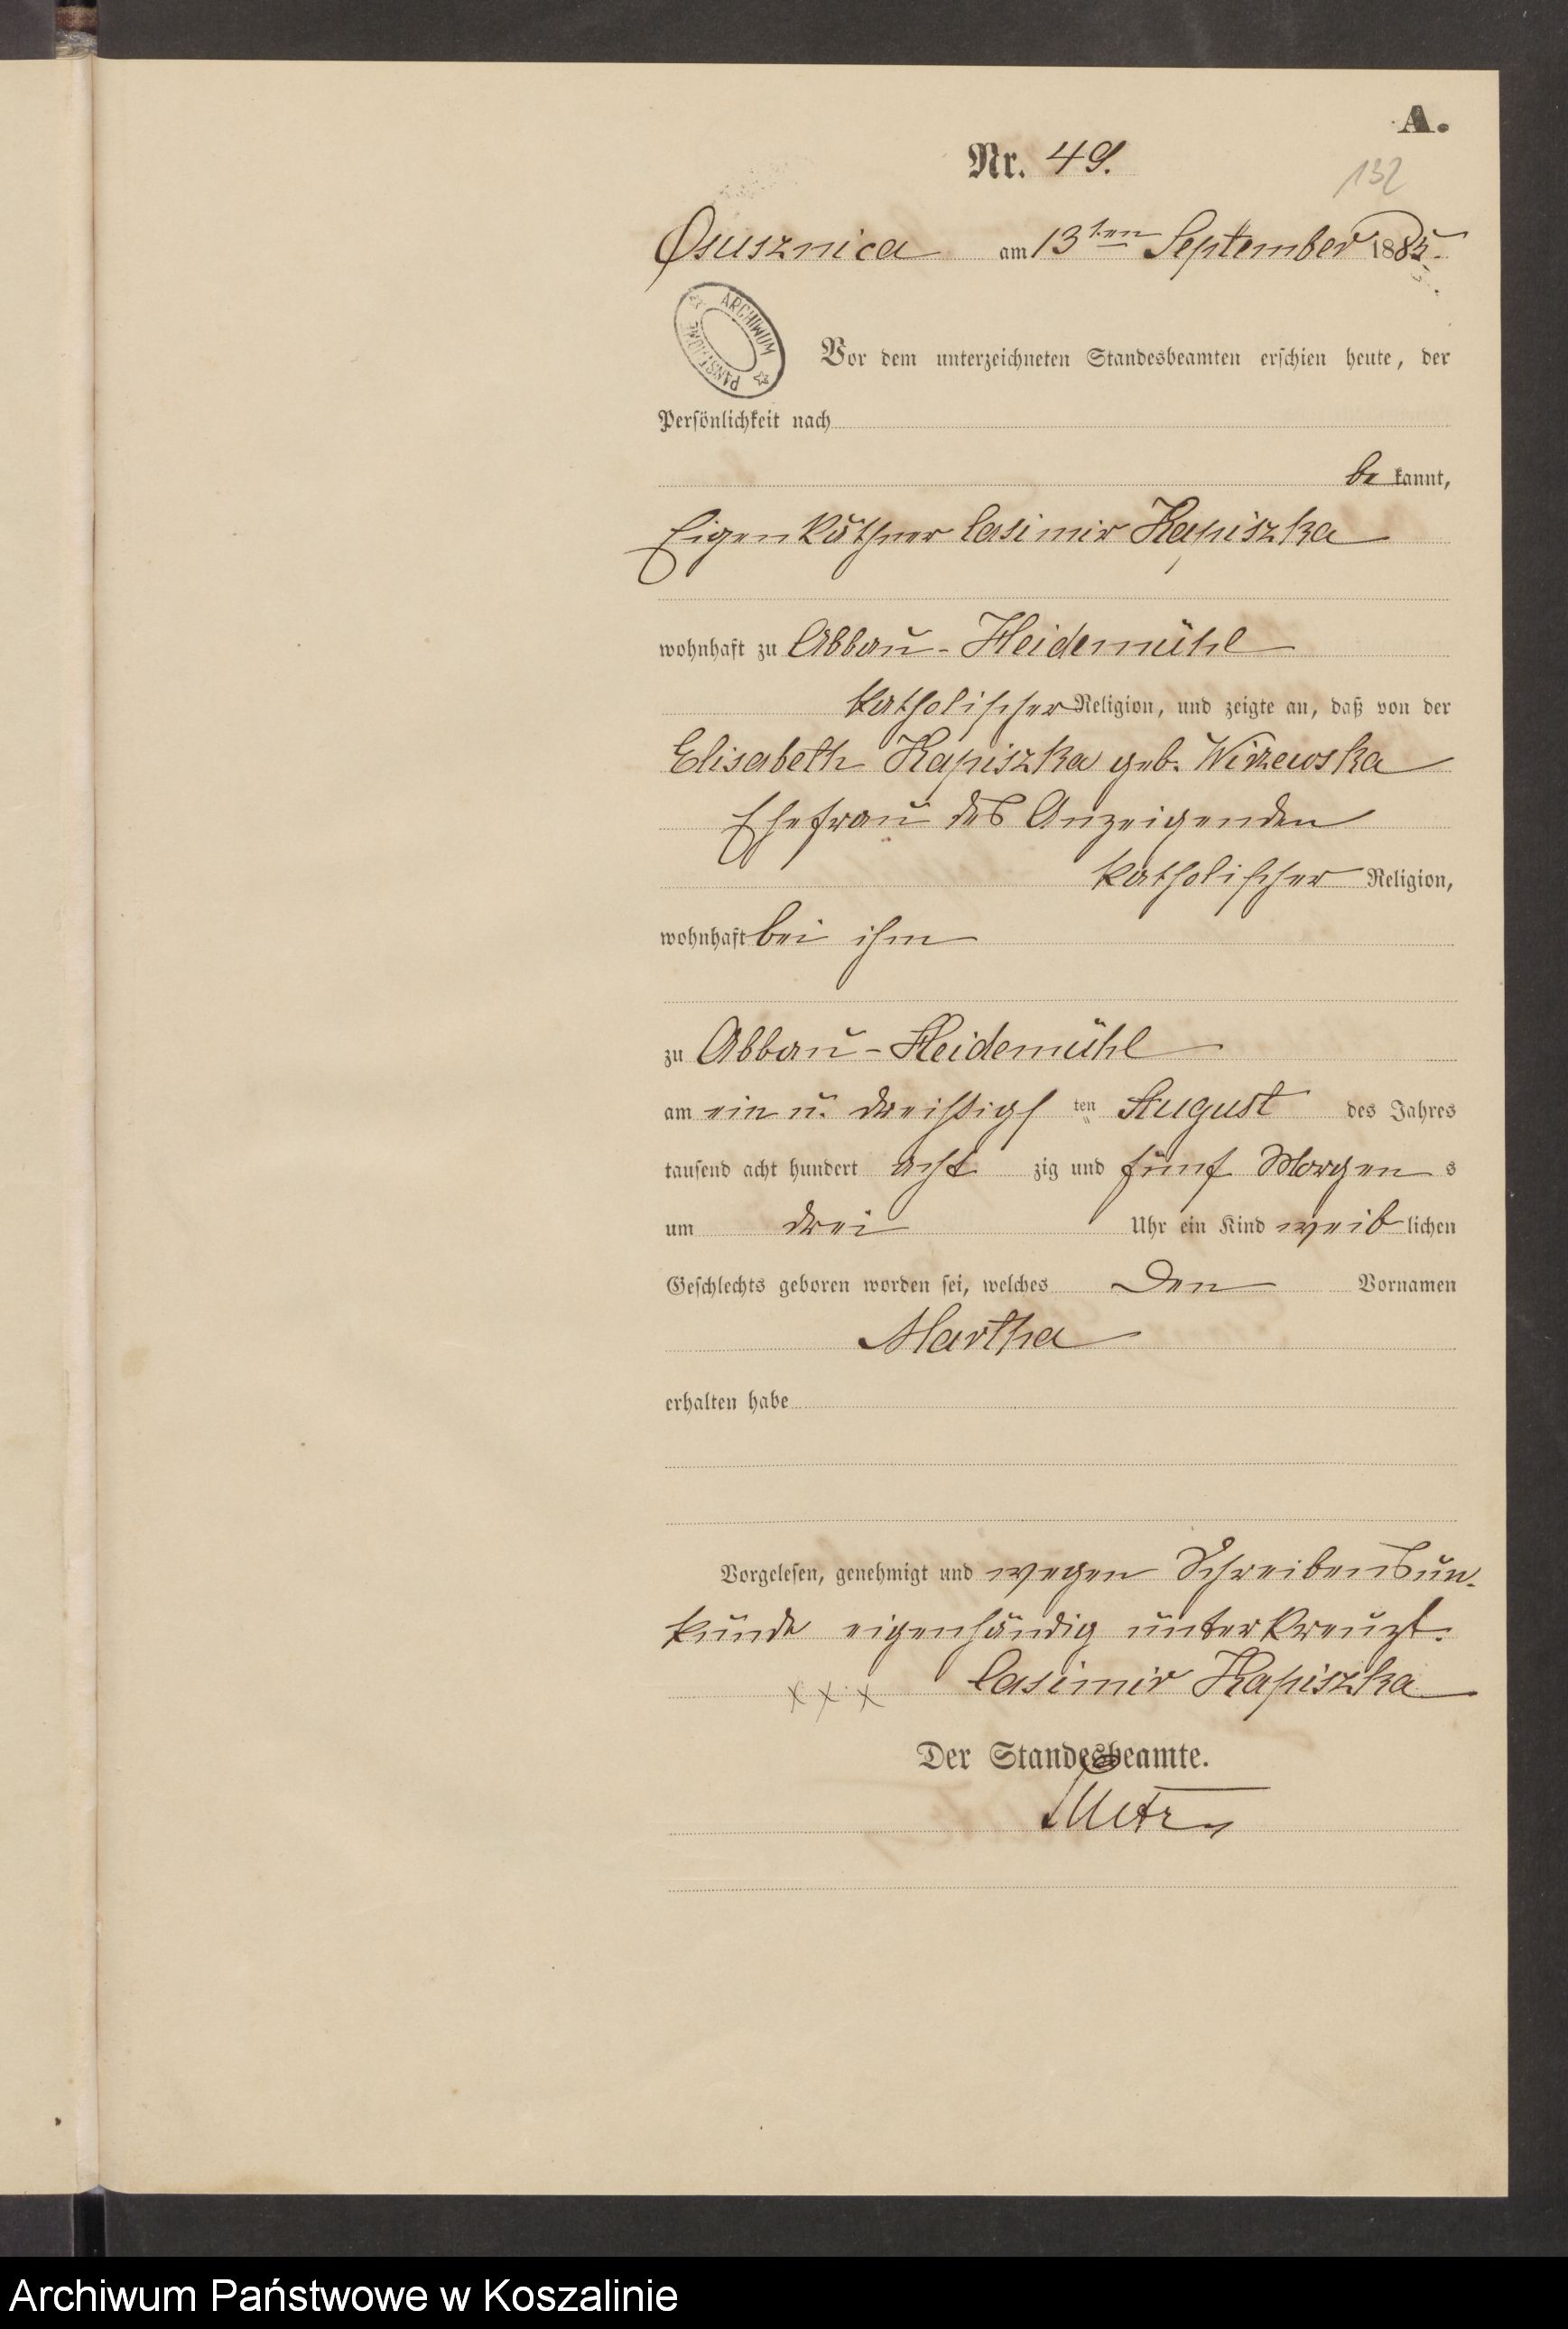 A.
Nr. 49.
132
Osusznica am 13ten September 1885.
ARCHIWUM PAŃSTWOWE
Vor dem unterzeichneten Standesbeamten erschien heute, der
Persönlichkeit nach
be kannt,
Eigenkäthner Casimir Kapiszka
wohnhaft zu Abbau-Heidemühl
katholischer Religion, und zeigte an, daß von der
Elisabeth Kapiszka geb. Wirzewska
Ehefrau des Anzeigenden
katholischer Religion,
wohnhaft bei ihm
zu Abbau-Heidemühl
am ein u. dreißigs ten August des Jahres
tausend acht hundert acht zig und fünf Morgen s
um drei Uhr ein Kind weib lichen
Geschlechts geboren worden sei, welches den Vornamen
Martha
erhalten habe
Vorgelesen, genehmigt und wegen Schreibensun-
kunde eigenhändig unterkreuzt.
x x x Casimir Kapiszka
Der Standesbeamte.
Archiwum Państwowe w Koszalinie